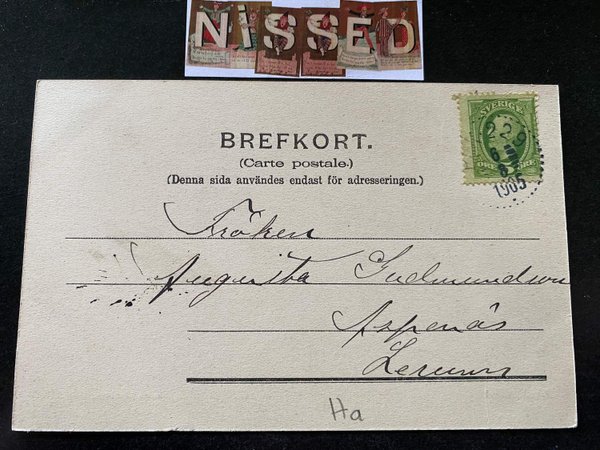 NiSSED
BREFKORT.
(Carte postale.)
(Denna sida användes endast för adresseringen.)
SVERIGE
229
1905
Fröken
Augusta Gudmundson
Aspenäs
Lerum
Ha